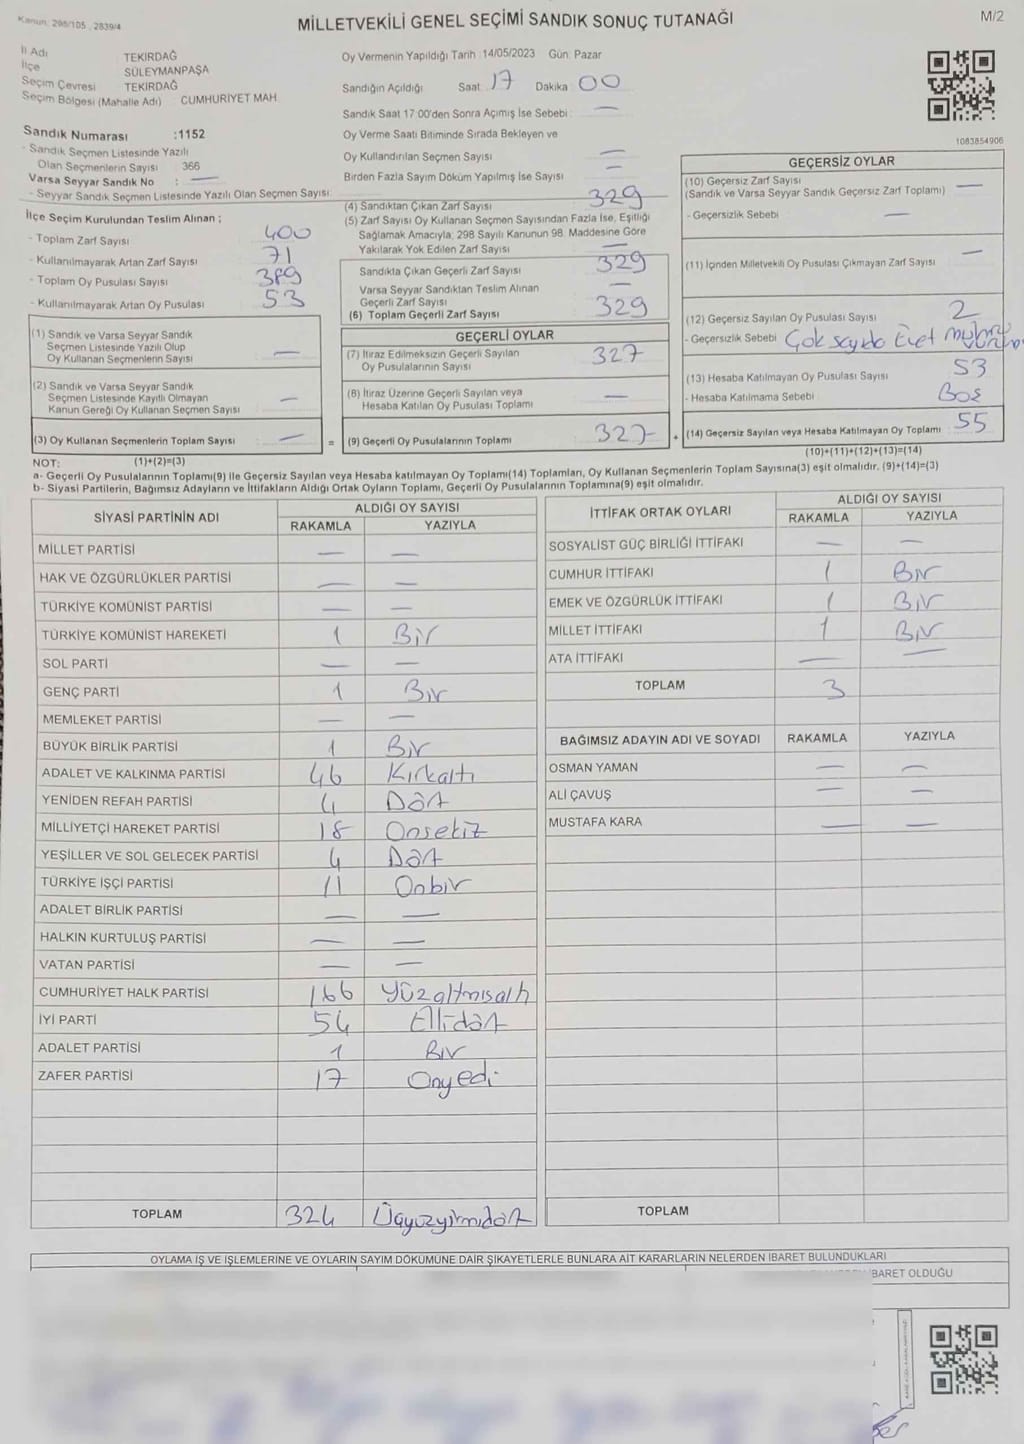 Kanun: 298/105 , 2839/4
MİLLETVEKİLİ GENEL SEÇİMİ SANDIK SONUÇ TUTANAĞI
M/2
İl Adı TEKİRDAĞ
İlçe SÜLEYMANPAŞA
Seçim Çevresi TEKİRDAĞ
Seçim Bölgesi (Mahalle Adı) CUMHURİYET MAH.
Sandık Numarası :1152
- Sandık Seçmen Listesinde Yazılı
Olan Seçmenlerin Sayısı : 366
Varsa Seyyar Sandık No : —
- Seyyar Sandık Seçmen Listesinde Yazılı Olan Seçmen Sayısı:
İlçe Seçim Kurulundan Teslim Alınan ;
- Toplam Zarf Sayısı 400
- Kullanılmayarak Artan Zarf Sayısı 71
- Toplam Oy Pusulası Sayısı 389
- Kullanılmayarak Artan Oy Pusulası 53
(1) Sandık ve Varsa Seyyar Sandık
Seçmen Listesinde Yazılı Olup
Oy Kullanan Seçmenlerin Sayısı —
(2) Sandık ve Varsa Seyyar Sandık
Seçmen Listesinde Kayıtlı Olmayan
Kanun Gereği Oy Kullanan Seçmen Sayısı —
(3) Oy Kullanan Seçmenlerin Toplam Sayısı — =
(1)+(2)=(3)
Oy Vermenin Yapıldığı Tarih : 14/05/2023 Gün: Pazar
Sandığın Açıldığı Saat 17 Dakika 00
Sandık Saat 17:00'den Sonra Açımış İse Sebebi : —
Oy Verme Saati Bitiminde Sırada Bekleyen ve
Oy Kullandırılan Seçmen Sayısı —
Birden Fazla Sayım Döküm Yapılmış İse Sayısı —
(4) Sandıktan Çıkan Zarf Sayısı 329
(5) Zarf Sayısı Oy Kullanan Seçmen Sayısından Fazla İse, Eşitliği
Sağlamak Amacıyla; 298 Sayılı Kanunun 98. Maddesine Göre
Yakılarak Yok Edilen Zarf Sayısı —
Sandıkta Çıkan Geçerli Zarf Sayısı 329
Varsa Seyyar Sandıktan Teslim Alınan
Geçerli Zarf Sayısı —
(6) Toplam Geçerli Zarf Sayısı 329
GEÇERLİ OYLAR
(7) İtiraz Edilmeksizin Geçerli Sayılan
Oy Pusulalarının Sayısı 327
(8) İtiraz Üzerine Geçerli Sayılan veya
Hesaba Katılan Oy Pusulası Toplamı —
(9) Geçerli Oy Pusulalarının Toplamı 327 +
1083854906
GEÇERSİZ OYLAR
(10) Geçersiz Zarf Sayısı
(Sandık ve Varsa Seyyar Sandık Geçersiz Zarf Toplamı) —
- Geçersizlik Sebebi —
(11) İçinden Milletvekili Oy Pusulası Çıkmayan Zarf Sayısı —
(12) Geçersiz Sayılan Oy Pusulası Sayısı 2
- Geçersizlik Sebebi Çok sayıda Evet
(13) Hesaba Katılmayan Oy Pusulası Sayısı 53
- Hesaba Katılmama Sebebi Boş
(14) Geçersiz Sayılan veya Hesaba Katılmayan Oy Toplamı 55
(10)+(11)+(12)+(13)=(14)
NOT:
a- Geçerli Oy Pusulalarının Toplamı(9) ile Geçersiz Sayılan veya Hesaba katılmayan Oy Toplamı(14) Toplamları, Oy Kullanan Seçmenlerin Toplam Sayısına(3) eşit olmalıdır. (9)+(14)=(3)
b- Siyasi Partilerin, Bağımsız Adayların ve İttifakların Aldığı Ortak Oyların Toplamı, Geçerli Oy Pusulalarının Toplamına(9) eşit olmalıdır.
SİYASİ PARTİNİN ADI ALDIĞI OY SAYISI
RAKAMLA YAZIYLA
MİLLET PARTİSİ — —
HAK VE ÖZGÜRLÜKLER PARTİSİ — —
TÜRKİYE KOMÜNİST PARTİSİ — —
TÜRKİYE KOMÜNİST HAREKETİ 1 Bir
SOL PARTİ — —
GENÇ PARTİ 1 Bir
MEMLEKET PARTİSİ — —
BÜYÜK BİRLİK PARTİSİ 1 Bir
ADALET VE KALKINMA PARTİSİ 46 Kırkaltı
YENİDEN REFAH PARTİSİ 4 Dört
MİLLİYETÇİ HAREKET PARTİSİ 18 Onsekiz
YEŞİLLER VE SOL GELECEK PARTİSİ 4 Dört
TÜRKİYE İŞÇİ PARTİSİ 11 Onbir
ADALET BİRLİK PARTİSİ — —
HALKIN KURTULUŞ PARTİSİ — —
VATAN PARTİSİ — —
CUMHURİYET HALK PARTİSİ 166 Yüzaltmışaltı
İYİ PARTİ 54 Ellidört
ADALET PARTİSİ 1 Bir
ZAFER PARTİSİ 17 Onyedi
TOPLAM 324 Üçyüzyirmidört
İTTİFAK ORTAK OYLARI ALDIĞI OY SAYISI
RAKAMLA YAZIYLA
SOSYALİST GÜÇ BİRLİĞİ İTTİFAKI — —
CUMHUR İTTİFAKI 1 Bir
EMEK VE ÖZGÜRLÜK İTTİFAKI 1 Bir
MİLLET İTTİFAKI 1 Bir
ATA İTTİFAKI — —
TOPLAM 3
BAĞIMSIZ ADAYIN ADI VE SOYADI RAKAMLA YAZIYLA
OSMAN YAMAN — —
ALİ ÇAVUŞ — —
MUSTAFA KARA — —
TOPLAM
OYLAMA İŞ VE İŞLEMLERİNE VE OYLARIN SAYIM DÖKÜMÜNE DAİR ŞİKAYETLERLE BUNLARA AİT KARARLARIN NELERDEN İBARET BULUNDUKLARI
İBARET OLDUĞU